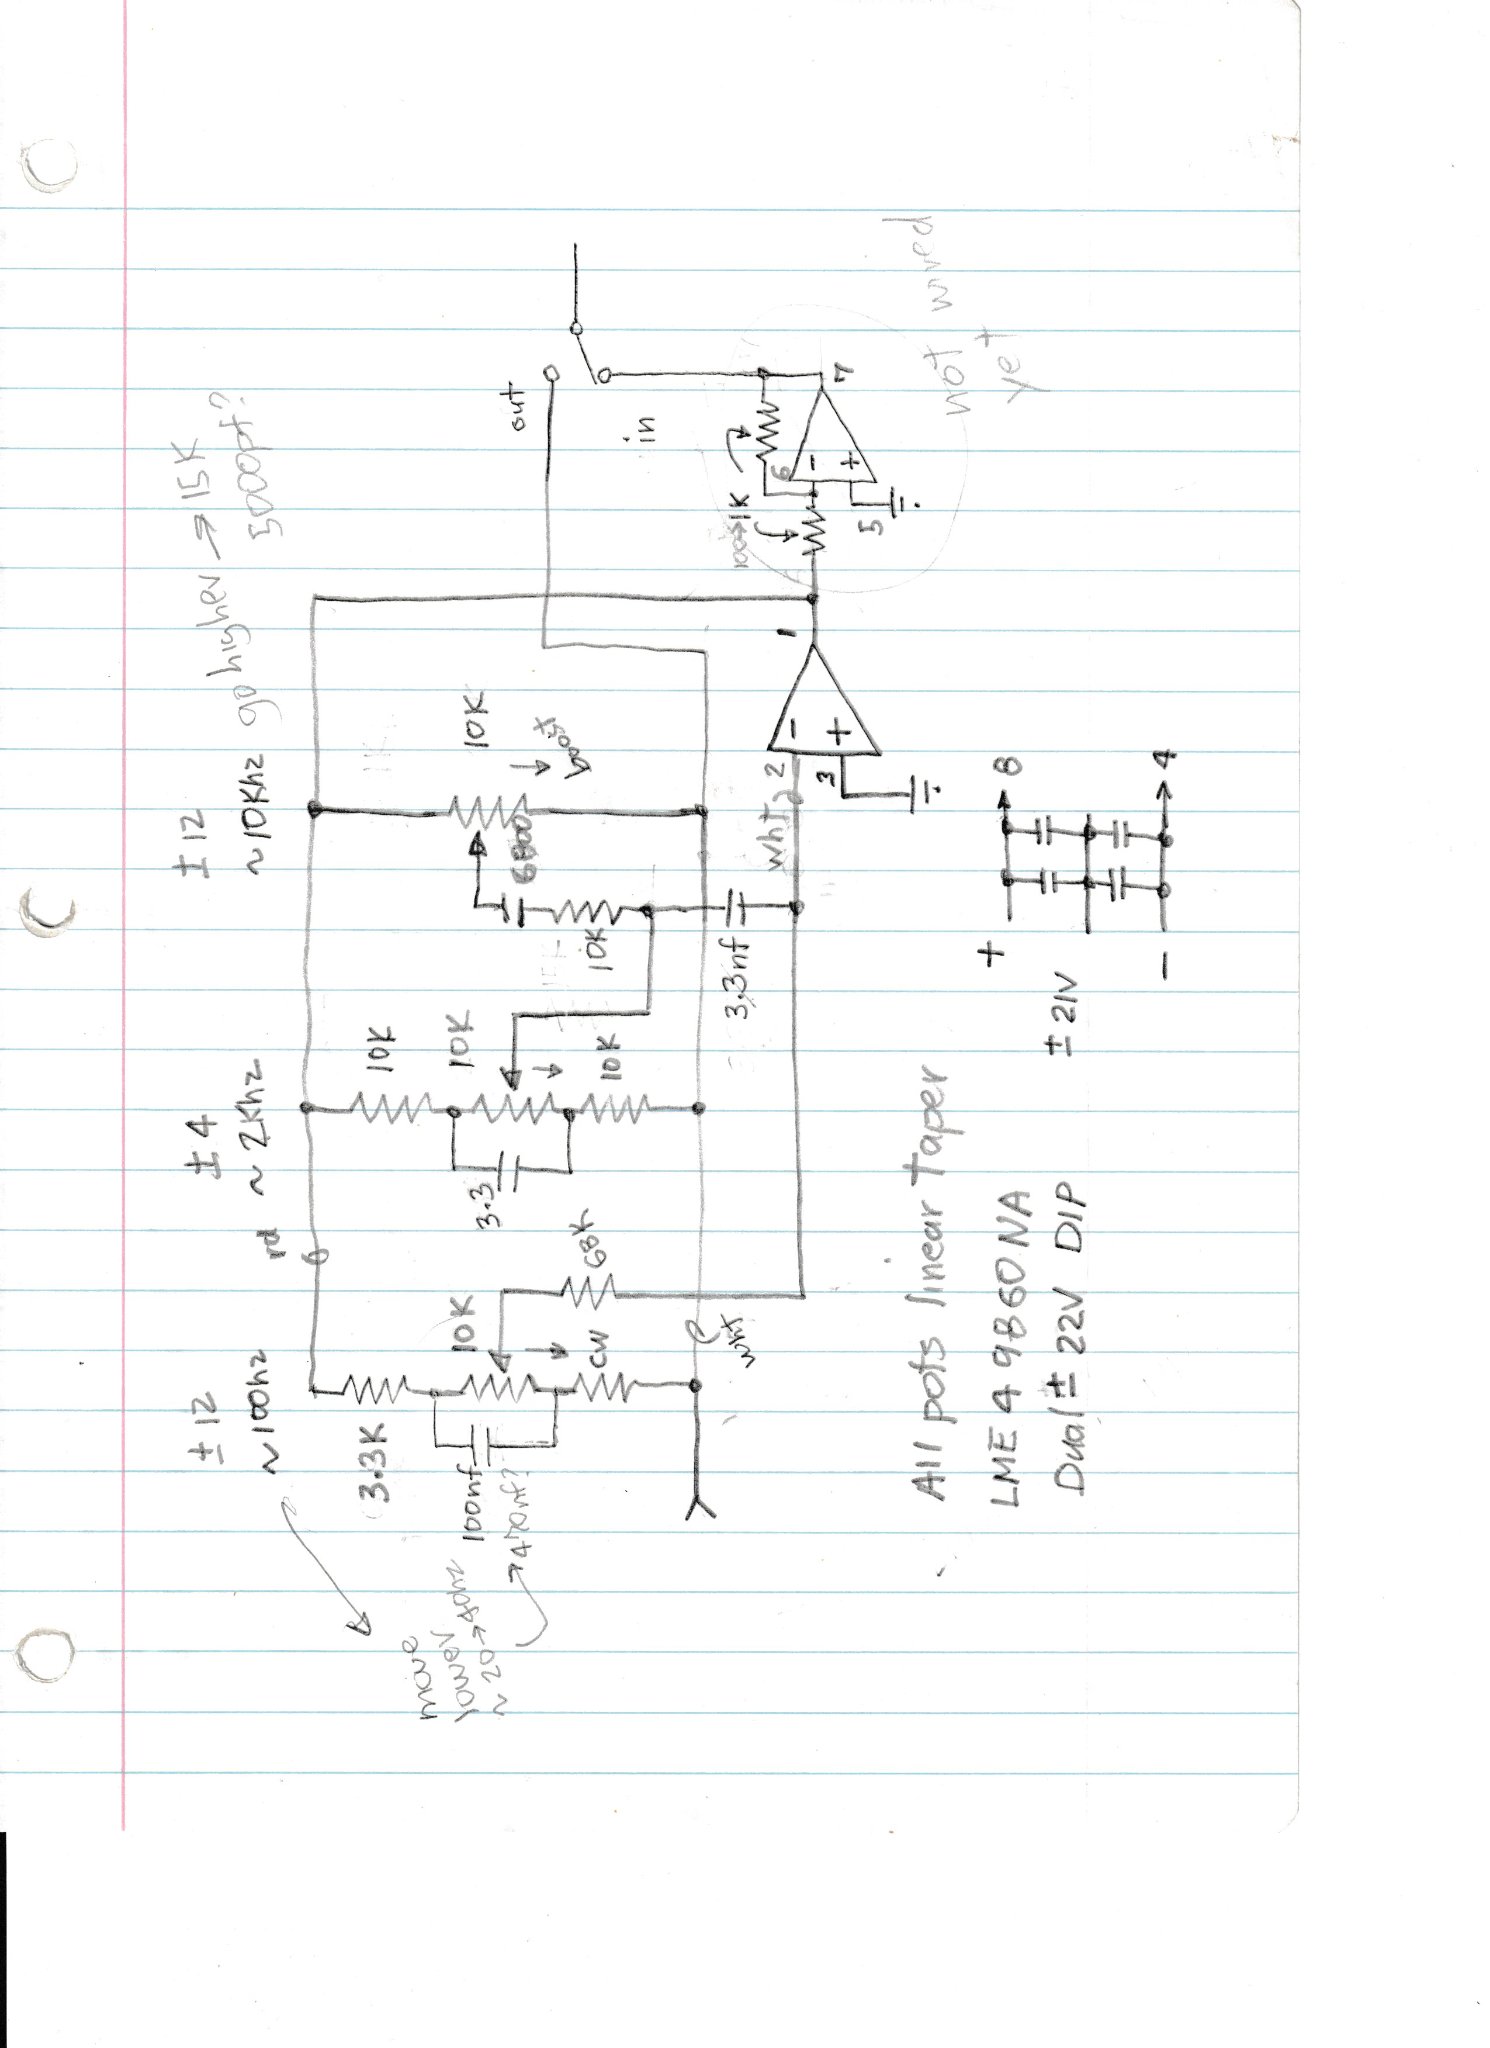 ± 12
~100hz
± 4
~ 2Khz
± 12
~10Khz
go higher → 15K
5000pf?
move
lower
~20→40hz
→470nf?
3.3K
10K
100nf
CW
68K
rd
wht
10K
10K
10K
3.3
10K
6800
10K
boost
3.3nf
wht
2
3
1
-
+
out
in
100→1K
6
5
7
-
+
not wired
yet
All pots linear taper
LME 49860NA
Dual ± 22V DIP
± 21V
+
-
8
4